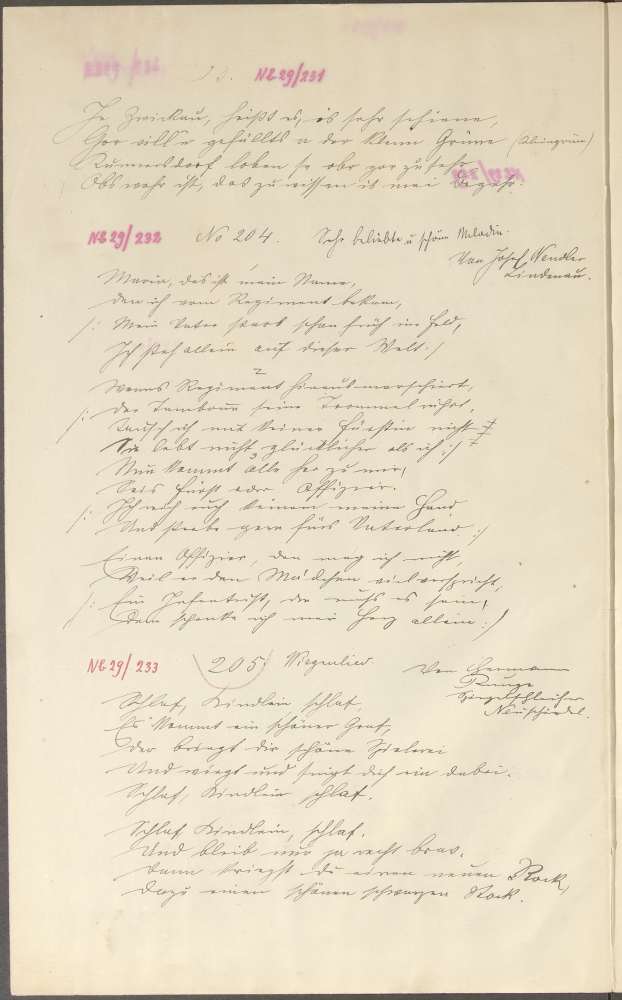 NB 29/231
In Zwickau, heißt es, is sehr schiene,
gefüllts a der Klenn Grüne (Kleingrün)
Kunnersdorf loben se aber gor zu sehr
Obs wahr ist, das zu wissen is mei Begehr.
NB 29/232 No 204. Sehr beliebte u schöne Melodie.
Von Josef Wendler
Lindenau.
Maria, das ist mein Name,
Den ich vom Regiment bekam,
/: Mein Vater starb schon früh im Feld,
Ich steh allein auf dieser Welt :/
2
Wenns Regiment hinausmarschiert,
/: Der Tambour seine Trommel rührt,
Tausch ich mit keiner Fürstin nicht
Die lebt nicht glücklicher als ich :/
3
Nun kommt alle her zu mir,
Seis Fürst oder Offizier.
/: Ich reich euch keinem meine Hand
Und sterbe gern fürs Vaterland :/
Einen Offizier, den mag ich nicht,
Weil er den Mädchen viel verspricht,
/: Ein Infanterist, der muß es sein,
Dem schenke ich mein Herz allein :/
NB 29/233 205. Wiegenlied. Von Hermann
Runge
Spiegelschleifer
Neuschiedel.
Schlaf, Kindlein, schlaf,
Es kommt ein schöner Graf,
Der bringt dir schöne Spielerei
Und wiegt und singt dich ein dabei.
Schlaf, Kindlein schlaf.
Schlaf Kindlein, schlaf.
Und bleib nur ja recht brav.
Dann kriegst du einen neuen Rock,
Dazu einen schönen schwarzen Stock.